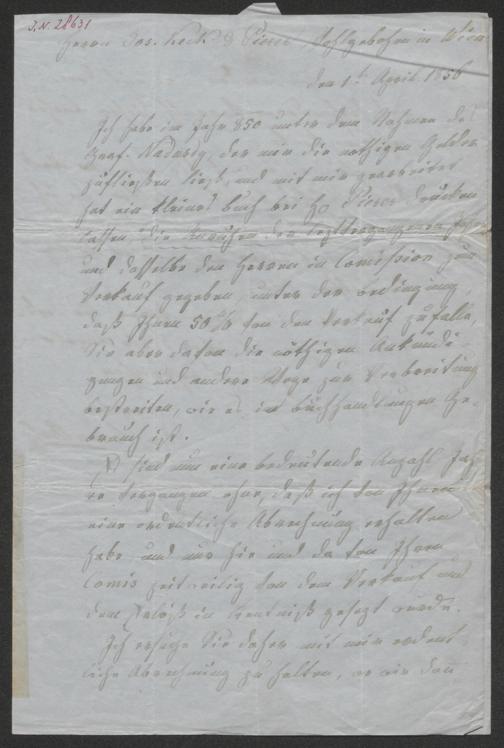 I.N. 28631
Herrn Jos. Keck & Pierer, Wohlgebohren in Wien
den 1t April 1856
Ich habe im Jahr 850 unter dem Nahmen des
Graf. Nadasdy, der mir die nöthigen Gelder
zufließen ließ, und mit mir gearbeitet
hat ein kleines Buch bei H Pierer drucken
lassen, die der
und dasselbe den Herren in Comission zum
Verkauf gegeben, unter der Bedingung,
daß Ihnen 50 % von dem Verkauf zufalle,
Sie aber davon die nöthigen Ankündi-
gungen und andere Wege zur Verbreitung
bestreiten, wie es im Buchhandlungen Ge-
brauch ist.
Es sind nun eine bedeutende Anzahl Jah-
re vergangen ohne, daß ich von Ihnen
eine ordentliche Abrechnung erhalten
habe und nur hie und da von Ihren
Comis zeitweilig von dem Verkauf und
dem Erlöß in Kentniß gesezt wurde.
Ich ersuche Sie daher mit mir ordent-
liche Abrechnung zu halten, so wie den